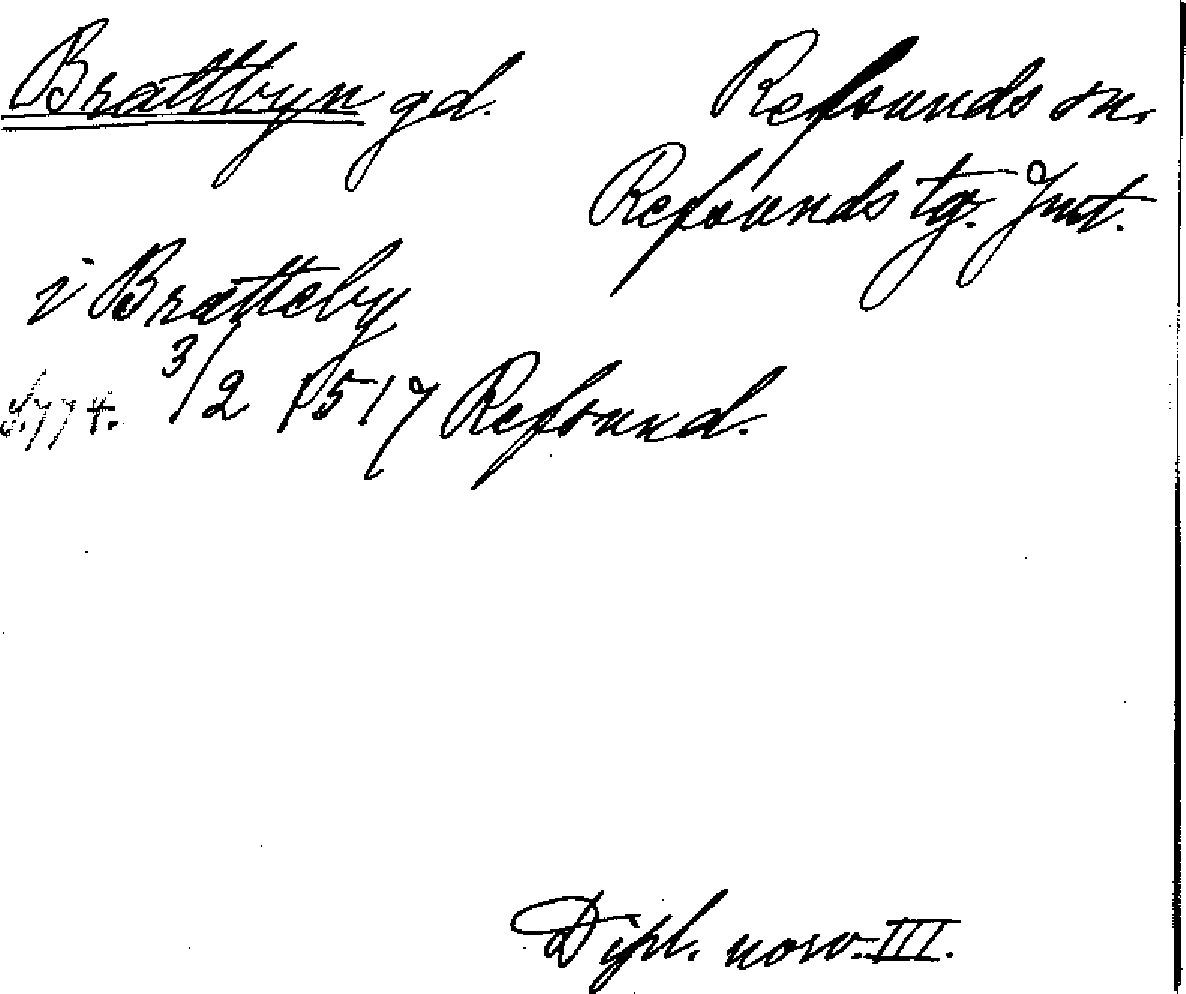 Brattbyn gd. Refsunds sn.
Refsunds tg. Jmt.
i Bratteby
S. 774. 3/2 1517 Refsund.
Dipl. norv. III.